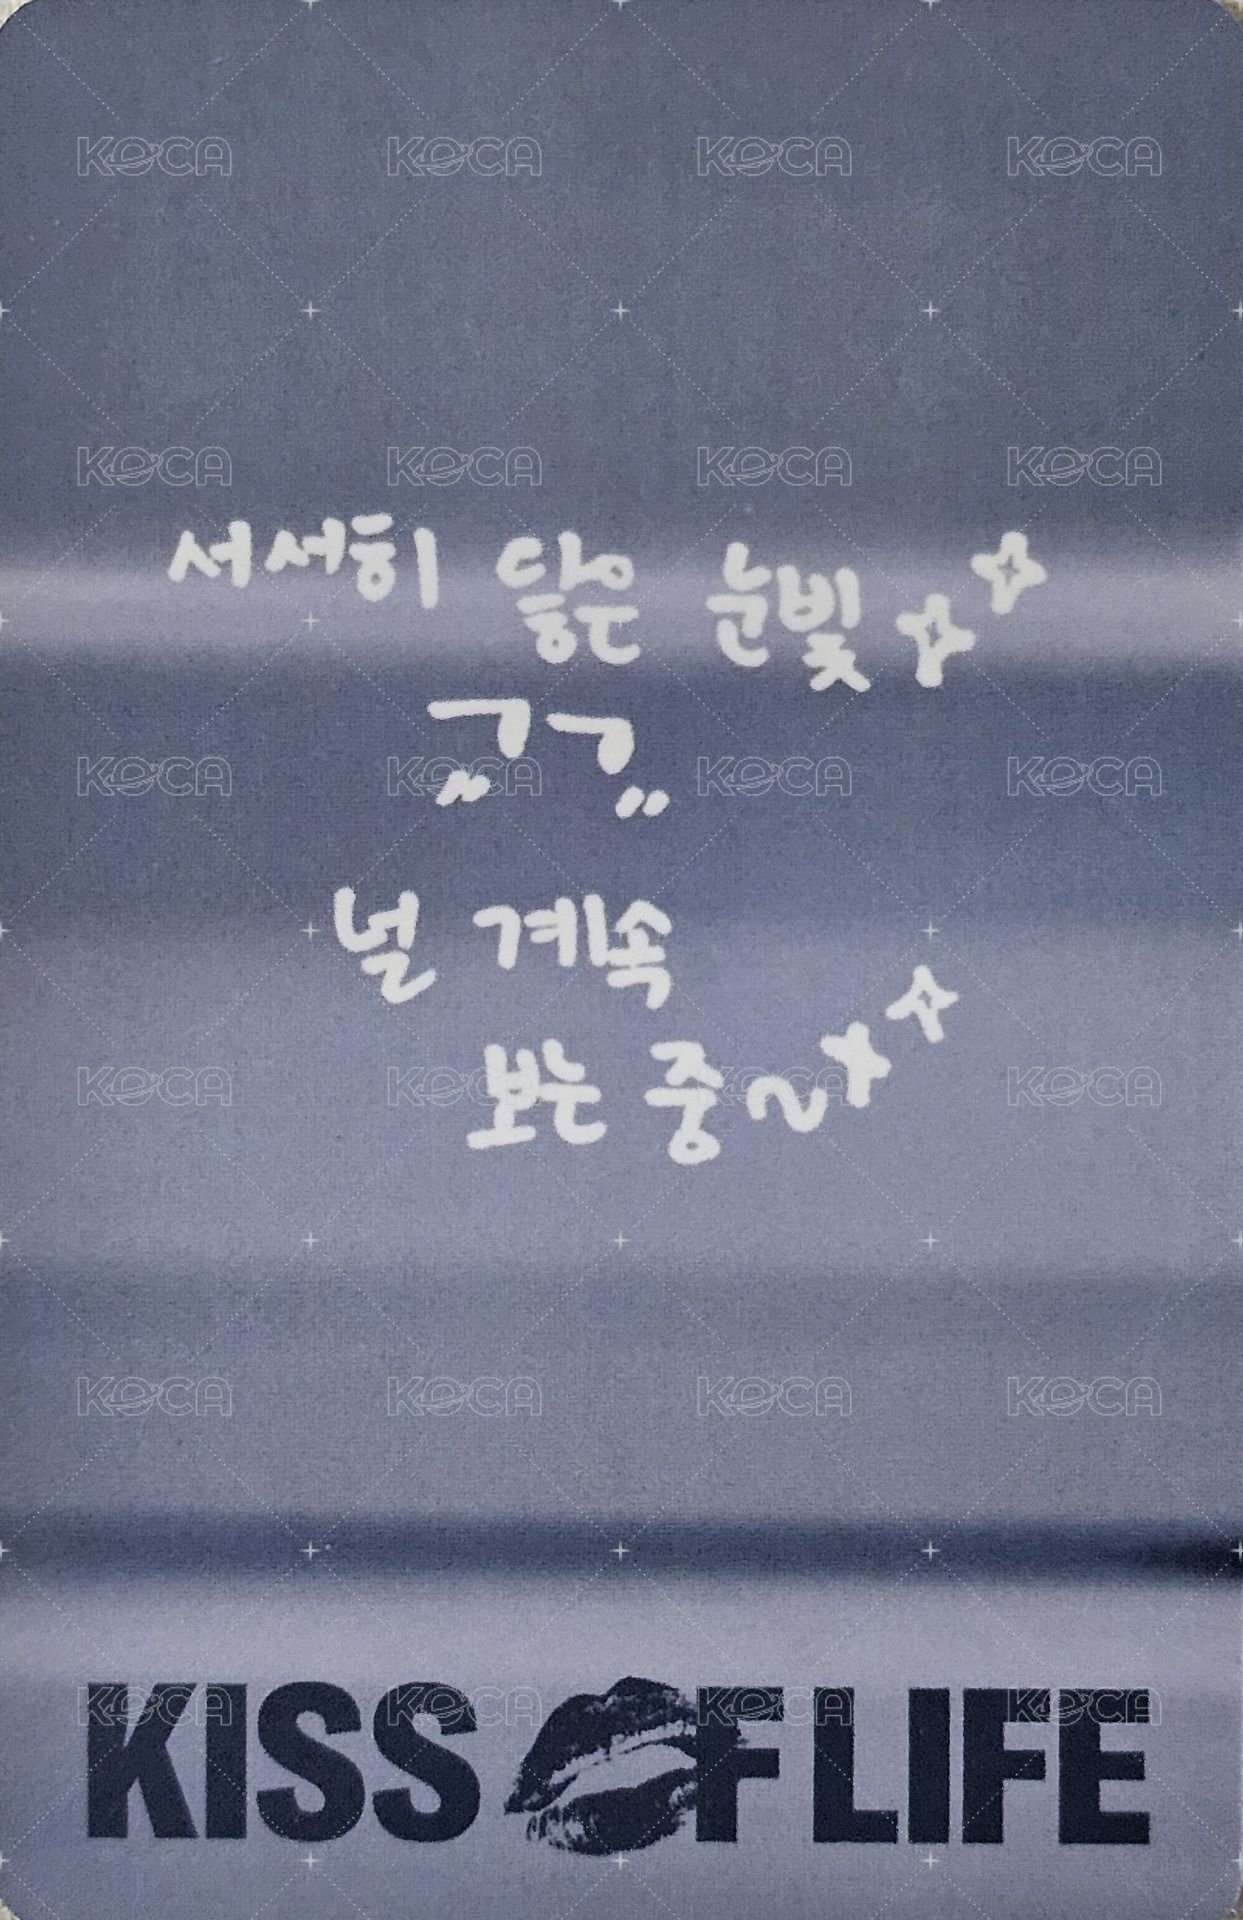 KOCA KOCA KOCA KOCA
KOCA KOCA KOCA KOCA
서서히 닿은 눈빛
ㄱㄱ
KOCA KOCA KOCA KOCA
널 계속
보는 중~
KOCA KOCA KOCA KOCA
KOCA KOCA KOCA KOCA
KOCA KOCA KOCA KOCA
KISS OF LIFE